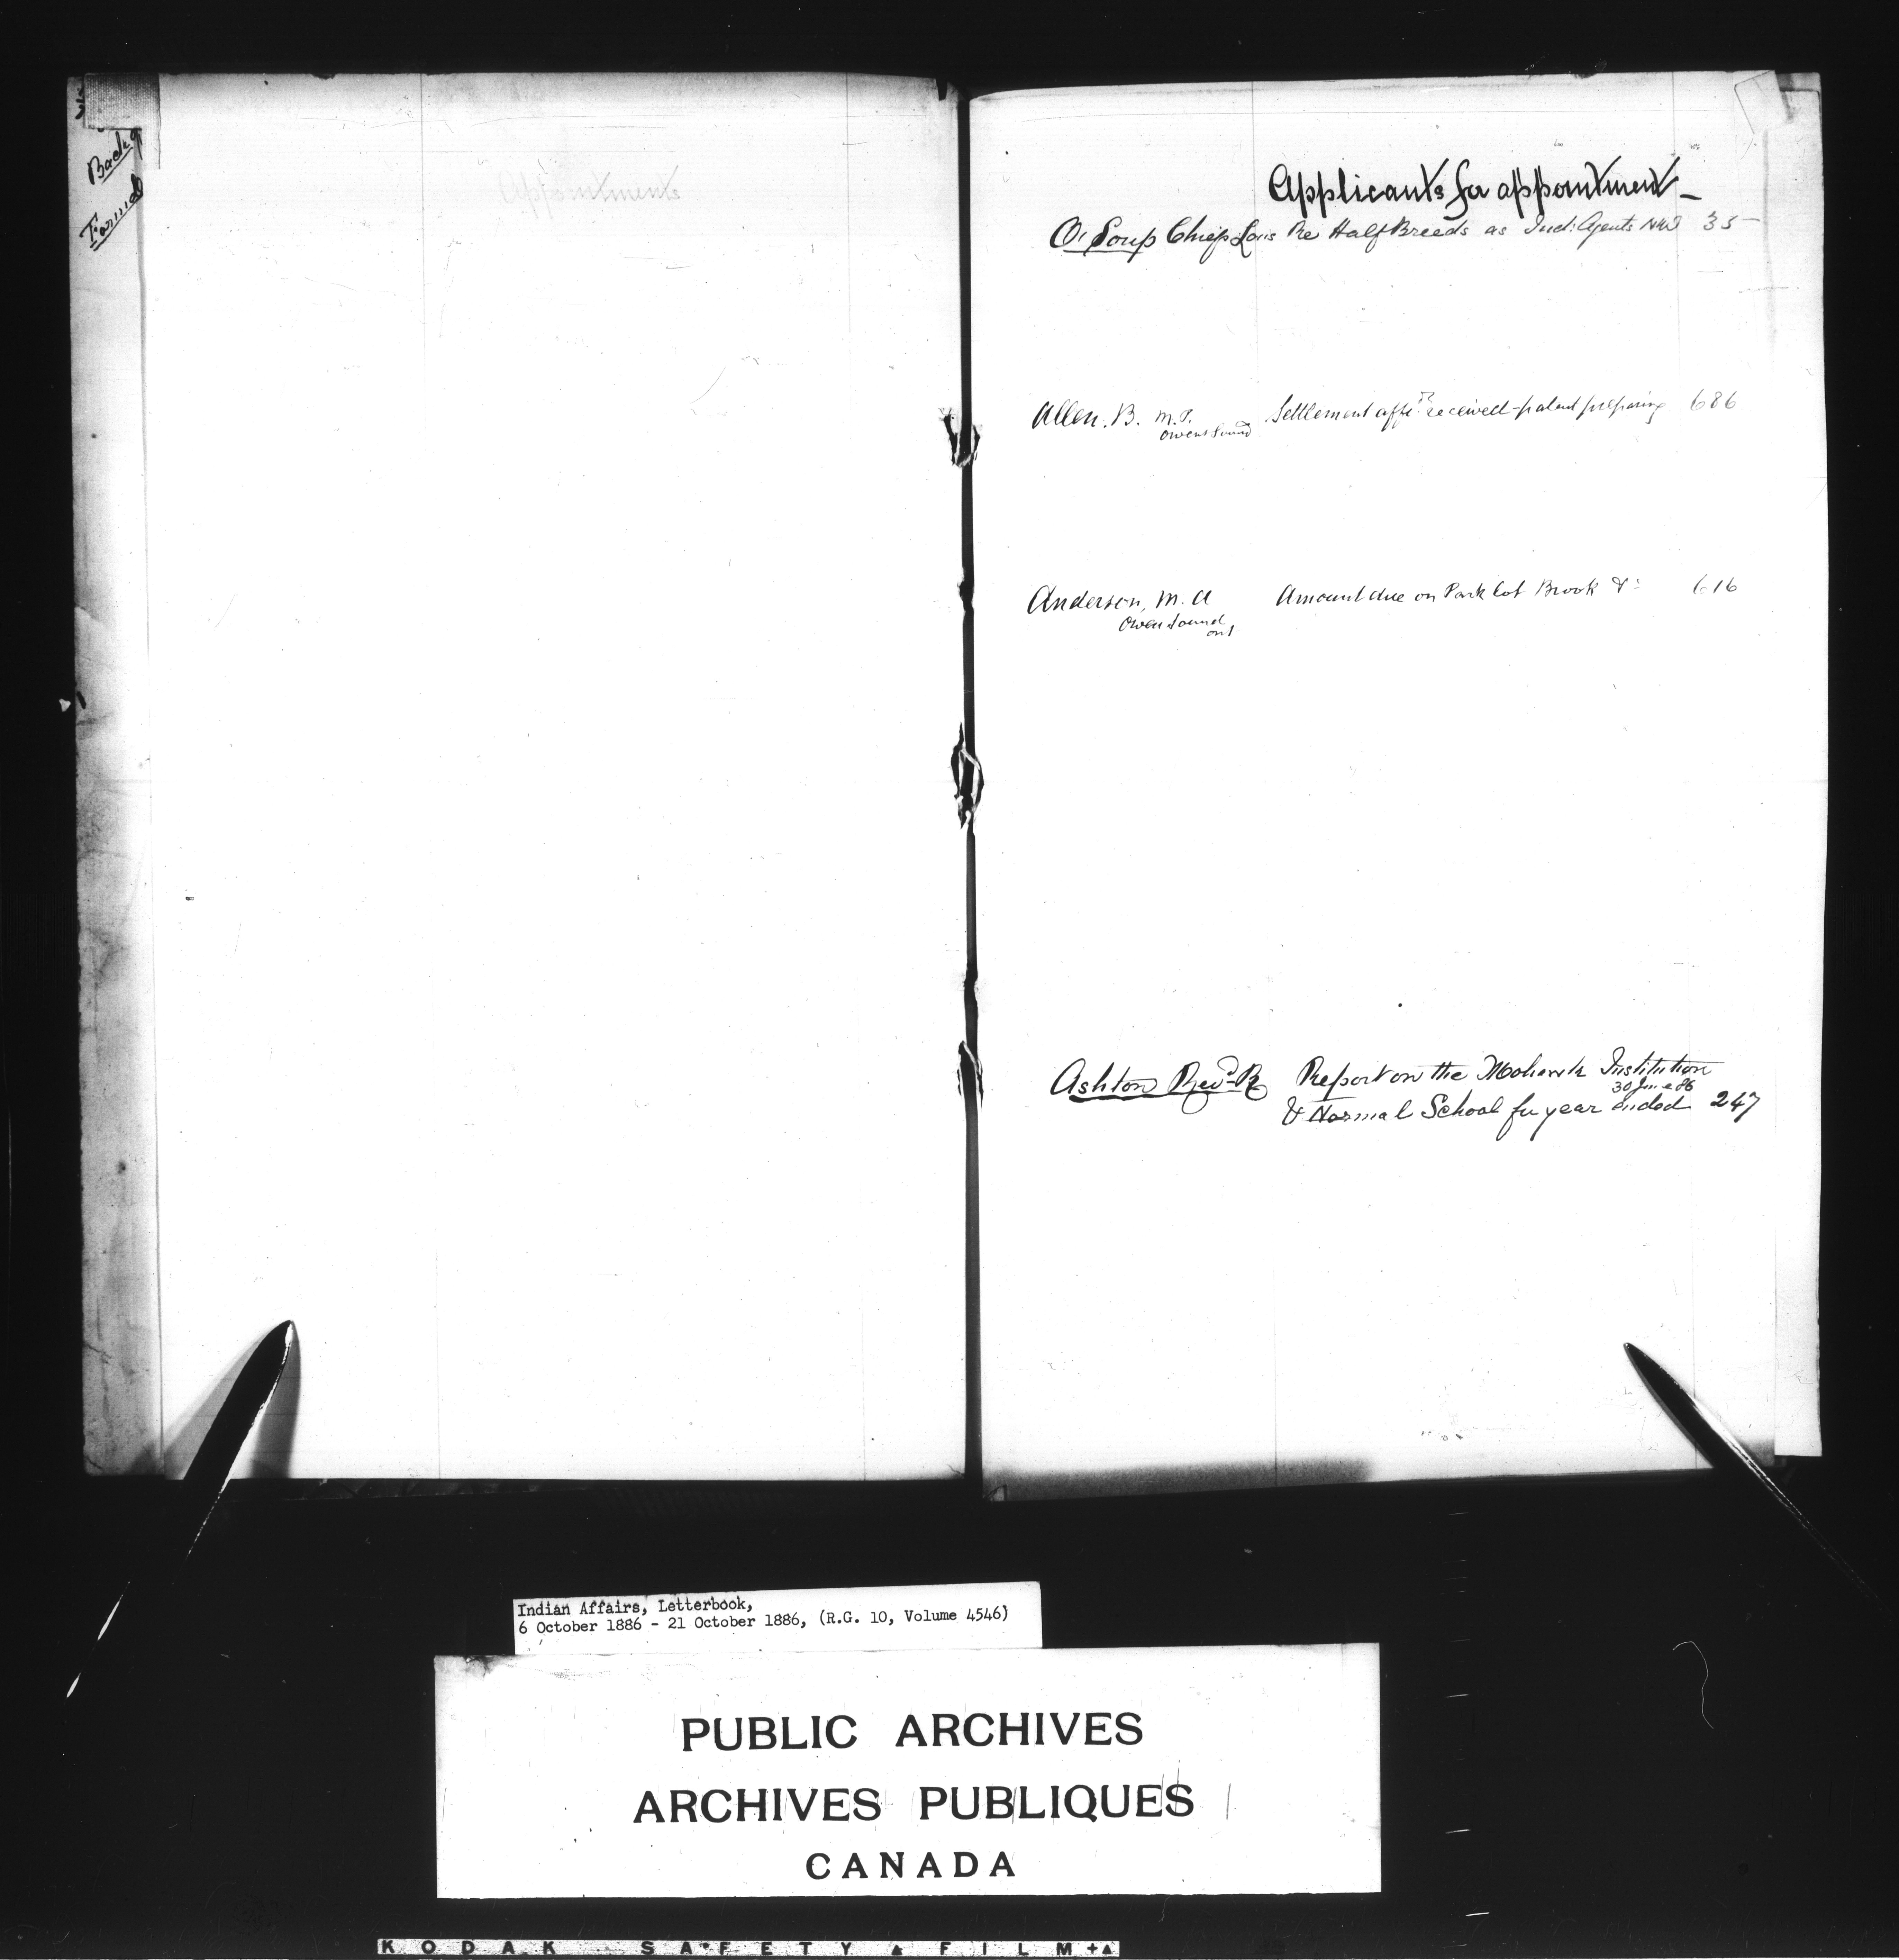 Appointments
Applicants for appointment –
O'Soup Chief Louis Re Half Breeds as Ind: Agents NW 35
Allen. B. M.P. Settlement affi.ts received – patent preparing 686
Owen Sound
Anderson, M. A Amount due on Park Lot Brook &c 616
Owen Sound
Ont
Ashton Revd. R Report on the Mohawk Institution
30 June 86
& Normal School for year ended 247
Indian Affairs, Letterbook,
6 October 1886 - 21 October 1886, (R.G. 10, Volume 4546)
PUBLIC ARCHIVES
ARCHIVES PUBLIQUES
CANADA
KODAK SAFETY FILM